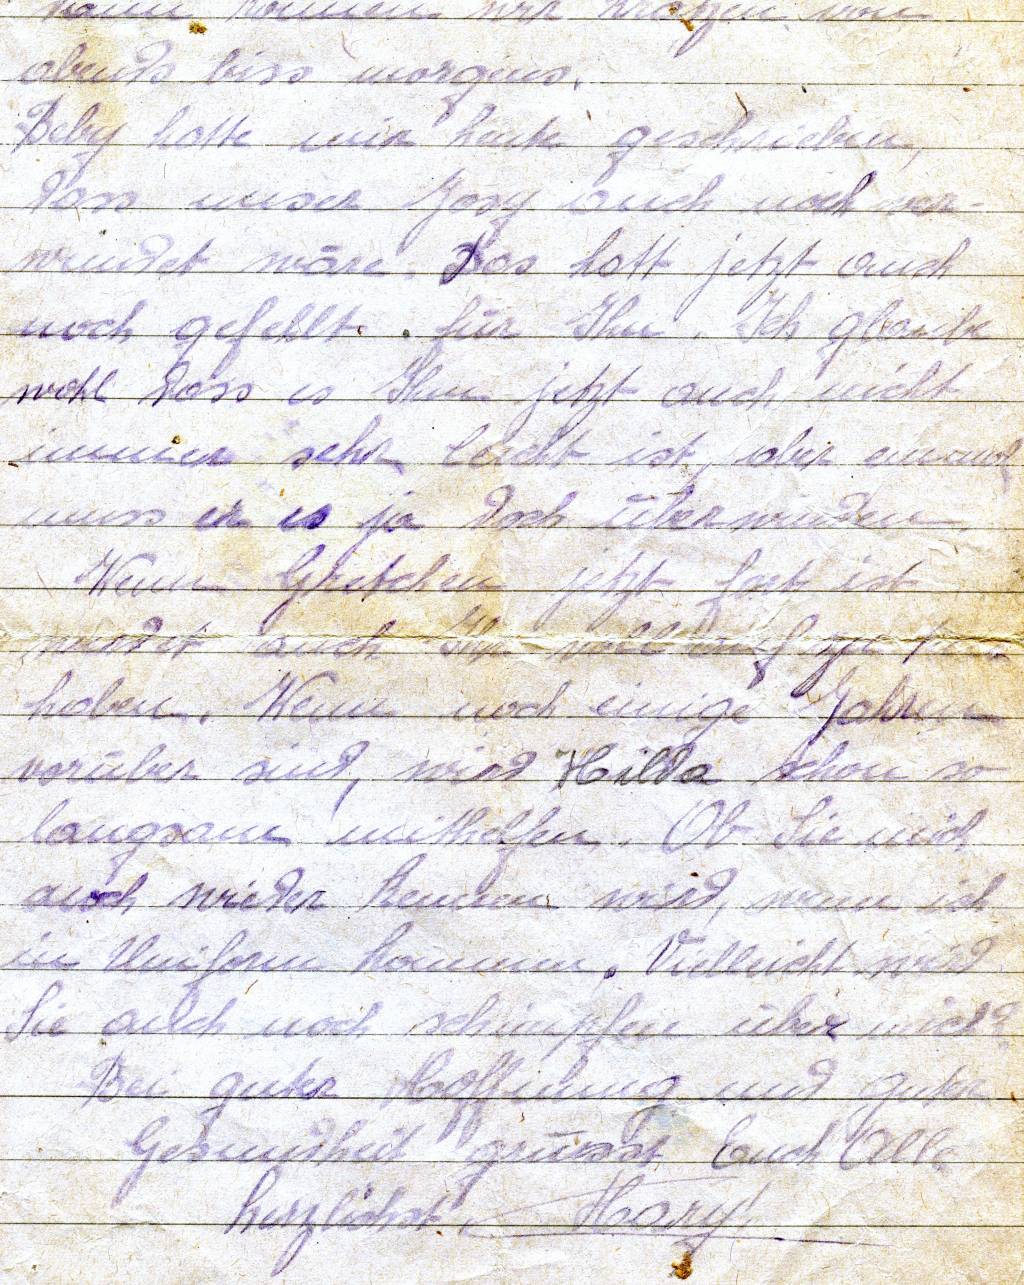 dann können wir kratzen von
abends biss morgens.
Beby hatte mir heute geschrieben,
dass unser Josy auch noch ver-
wundet wäre. Das hatt jetzt auch
noch gefehlt. für Ihn. Ich glaube
wohl dass es Ihm jetzt auch nicht
immer sehr leicht ist, aber einmal
muss er es ja doch überwinden
Wenn Gretchen jetzt fort ist
werdet auch Ihr voll auf zu tun
haben. Wenn noch einige Jahren
vorüber sind, wird Hilda schon so
langsam mithelfen. Ob Sie mich
auch wieder kennen wird, wenn ich
in Uniform kommen. Vielleicht wird
Sie auch noch schimpfen über mich?
Bei guter Hoffnung und guter
Gesundheit grüsst Euch Alle
herzlichst,